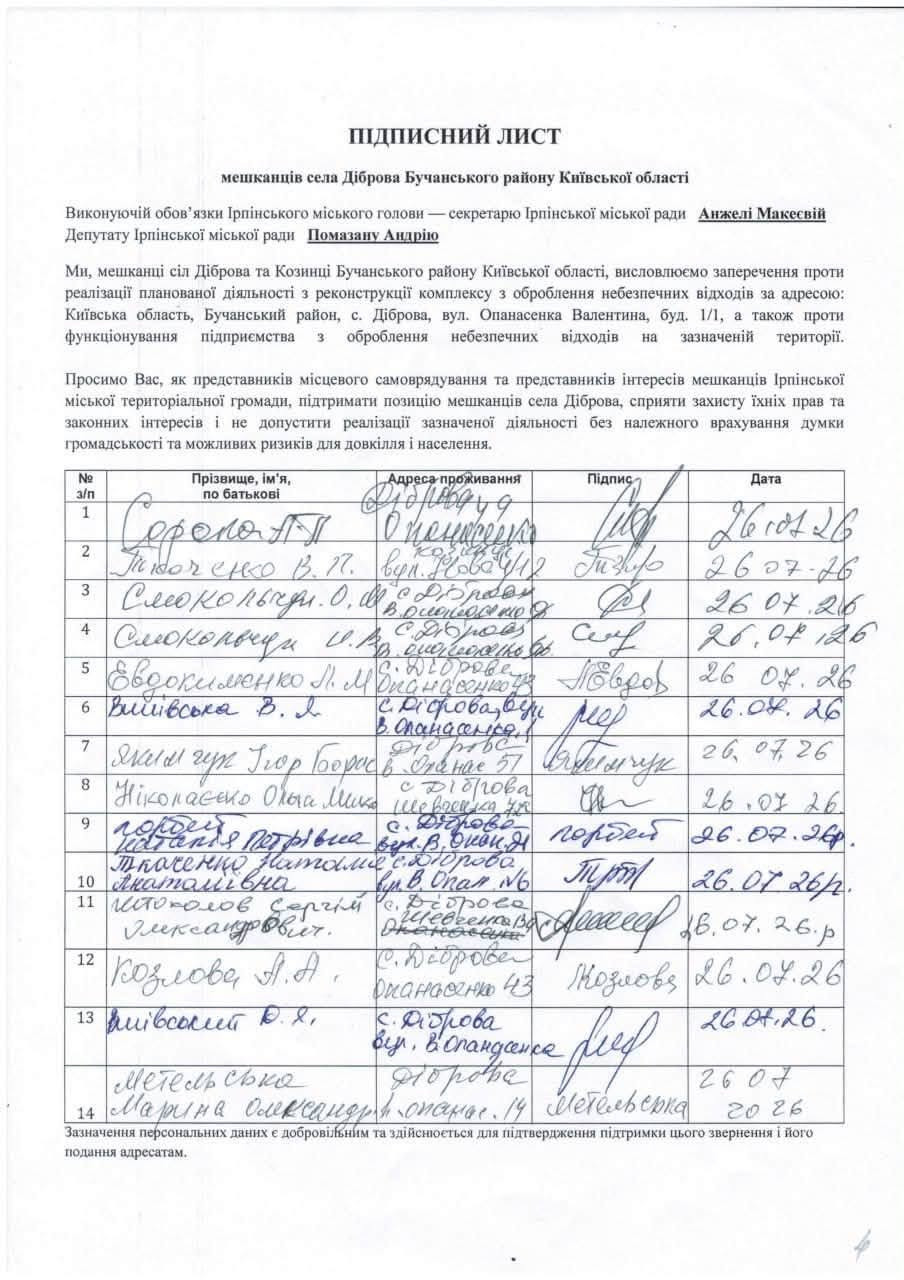 ПІДПИСНИЙ ЛИСТ
мешканців села Діброва Бучанського району Київської області
Виконуючій обов’язки Ірпінського міського голови — секретарю Ірпінської міської ради Анжелі Макеєвій
Депутату Ірпінської міської ради Помазану Андрію
Ми, мешканці сіл Діброва та Козинці Бучанського району Київської області, висловлюємо заперечення проти
реалізації планованої діяльності з реконструкції комплексу з оброблення небезпечних відходів за адресою:
Київська область, Бучанський район, с. Діброва, вул. Опанасенка Валентина, буд. 1/1, а також проти
функціонування підприємства з оброблення небезпечних відходів на зазначеній території.
Просимо Вас, як представників місцевого самоврядування та представників інтересів мешканців Ірпінської
міської територіальної громади, підтримати позицію мешканців села Діброва, сприяти захисту їхніх прав та
законних інтересів і не допустити реалізації зазначеної діяльності без належного врахування думки
громадськості та можливих ризиків для довкілля і населення.
№ з/п Прізвище, ім’я, по батькові Адреса проживання Підпис Дата
1 Сорока Діброва Опанасенко 26.07.26
2 Ткаченко В. П. вул. Нова 26 07-26
3 Смокольчук О. с. Діброва 26 07. 26
4 Смокольчук с. Діброва 26.07.26
5 Евдокименко Л. М с. Діброва Опанасенко 43 26 07. 26
6 В. Я. с. Діброва, вул. В. Опанасенка 26.07. 26
7 Якимчук Ігор Борис Діброва в. Опанас 51 Якимчук 26. 07. 26
8 Ніколаєнко Ольга Мико с Діброва Шевченка 26.07 26.
9 Горбей Наталія Петрівна с. Діброва вул. В. Опан. Горбей 26.07.26р.
10 Ткаченко Наталія Анатоліївна с. Діброва вул. В. Опан. №6 26.07 26р.
11 Штоколов Сергій Олександрович. с. Діброва Шевченка 26.07. 26.р
12 Козлова А. А. с. Діброва Опанасенко 43 Козлова 26.07.26
13 с. Діброва вул. В. Опанасенка 26.07.26.
14 Метельська Марина Олександр Діброва в. Опанас. 14 Метельська 26 07 2026
Зазначення персональних даних є добровільним та здійснюється для підтвердження підтримки цього звернення і його
подання адресатам.